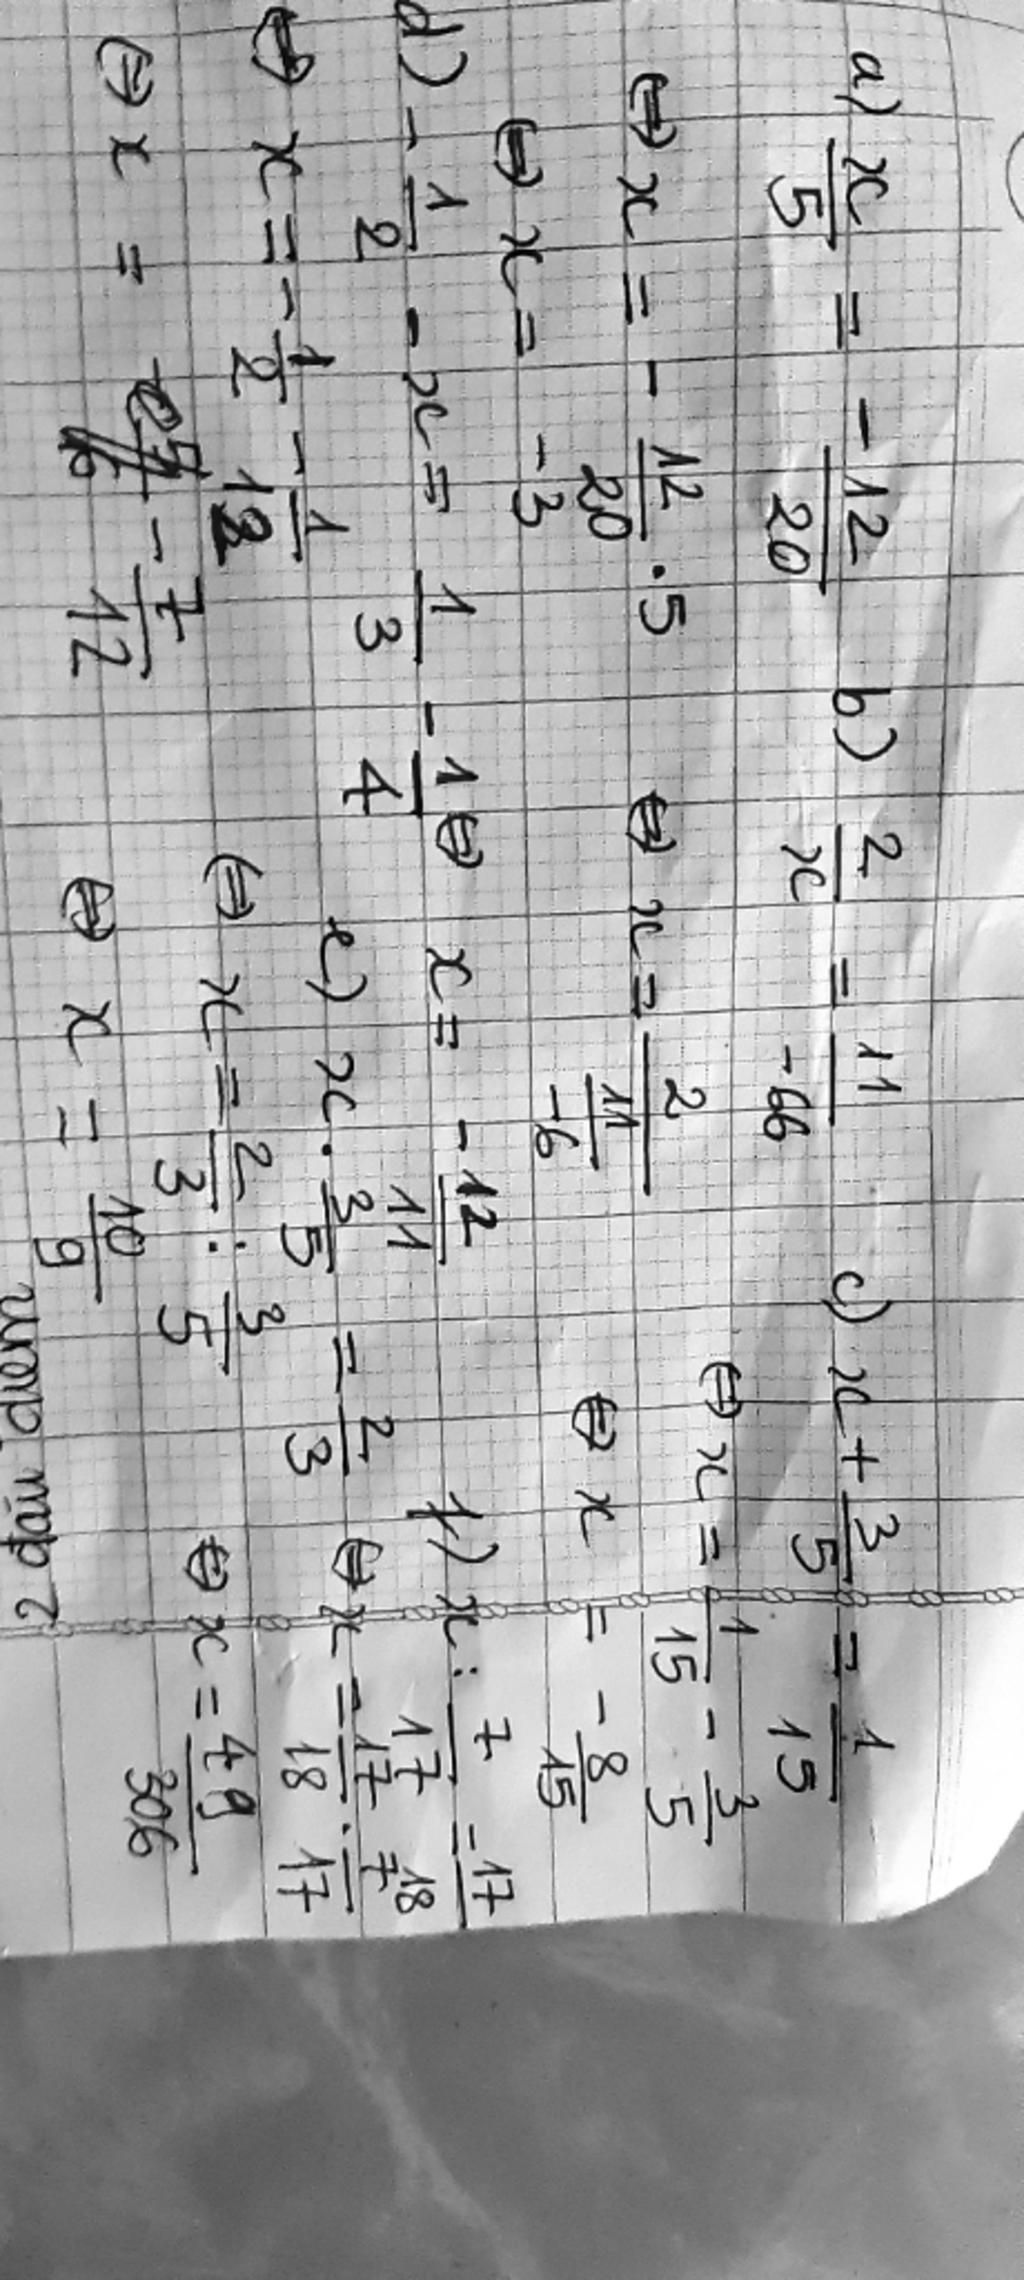 a) x/5 = -12/20
⇔ x = - 12/20 . 5
⇔ x = -3
b) 2/x = 11/-66
⇔ x = 2/(11/-6)
⇔ x = -12/11
c) x + 3/5 = 1/15
⇔ x = 1/15 - 3/5
⇔ x = -8/15
d) - 1/2 - x = 1/3 - 1/4
⇔ x = - 1/2 - 1/12
⇔ x = - 7/12
e) x . 3/5 = 2/3
⇔ x = 2/3 : 3/5
⇔ x = 10/9
f) x : 7/17 = 17/18
⇔ x = 17/18 . 7/17
⇔ x = 49/306
2 dấu điểm